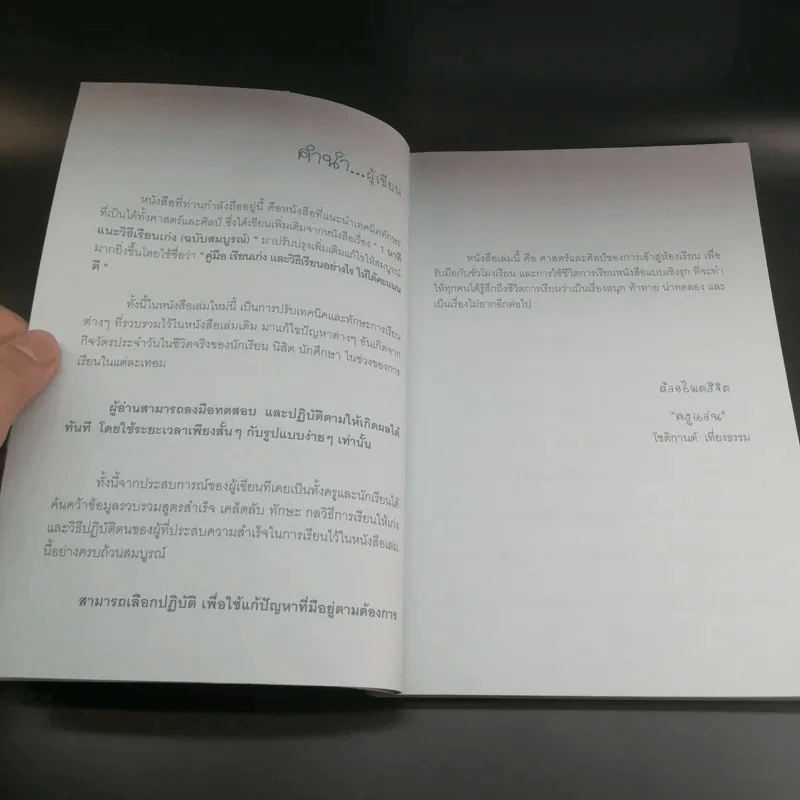 คำนำ...ผู้เขียน
หนังสือที่ท่านกำลังถืออยู่นี้ คือหนังสือที่แนะนำเทคนิคทักษะ
ที่เป็นได้ทั้งศาสตร์และศิลป์ ซึ่งได้เขียนเพิ่มเติมจากหนังสือเรื่อง " 1 นาที
แนะวิธีเรียนเก่ง (ฉบับสมบูรณ์) " มาปรับปรุงเพิ่มเติมแก้ไขให้สมบูรณ์
มากยิ่งขึ้นโดยใช้ชื่อว่า "คู่มือ เรียนเก่ง และวิธีเรียนอย่างไร ให้ได้คะแนน
ดี "
ทั้งนี้ในหนังสือเล่มใหม่นี้ เป็นการปรับเทคนิคและทักษะการเรียน
ต่างๆ ที่รวบรวมไว้ในหนังสือเล่มเดิม มาแก้ไขปัญหาต่างๆ อันเกิดจาก
กิจวัตรประจำวันในชีวิตจริงของนักเรียน นิสิต นักศึกษา ในช่วงของการ
เรียนในแต่ละเทอม
ผู้อ่านสามารถลงมือทดสอบ และปฏิบัติตามให้เกิดผลได้
ทันที โดยใช้ระยะเวลาเพียงสั้นๆ กับรูปแบบง่ายๆ เท่านั้น
ทั้งนี้จากประสบการณ์ของผู้เขียนที่เคยเป็นทั้งครูและนักเรียนได้
ค้นคว้าข้อมูลรวบรวมสูตรสำเร็จ เคล็ดลับ ทักษะ กลวิธีการเรียนให้เก่ง
และวิธีปฏิบัติตนของผู้ที่ประสบความสำเร็จในการเรียนไว้ในหนังสือเล่ม
นี้อย่างครบถ้วนสมบูรณ์
สามารถเลือกปฏิบัติ เพื่อใช้แก้ปัญหาที่มีอยู่ตามต้องการ
หนังสือเล่มนี้ คือ ศาสตร์และศิลป์ของการเข้าสู่ห้องเรียน เพื่อ
รับมือกับชั่วโมงเรียน และการใช้ชีวิตการเรียนหนังสือแบบเชิงรุก ที่จะทำ
ให้ทุกคนได้รู้สึกถึงชีวิตการเรียนว่าเป็นเรื่องสนุก ท้าทาย น่าทดลอง และ
เป็นเรื่องไม่ยากอีกต่อไป
ด้วยไมตรีจิต
"ครูแอ่น"
โชติกานต์ เที่ยงธรรม